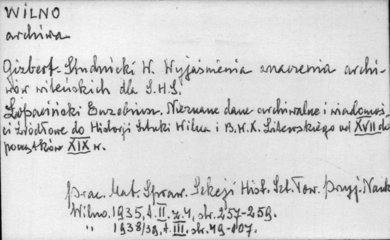 WILNO
archiwa
Gizbert-Studnicki W. Wyjaśnienia znaczenia archi-
wów wileńskich dla L.H.S.
Łopaciński Euzebiusz. Nieznane dane archiwalne i wiadomoś-
ci źródłowe do Historji Sztuki Wilna i B.W.X. Litewskiego od XVII do
początków XIX w.
prac. Mat. Spraw. Sekcji Hist. Szt. Tow. Przyj. Nauk
Wilno. 1935, t. II. z. 4, str. 257-259.
" 1938/39, t. III. str. 49-107.